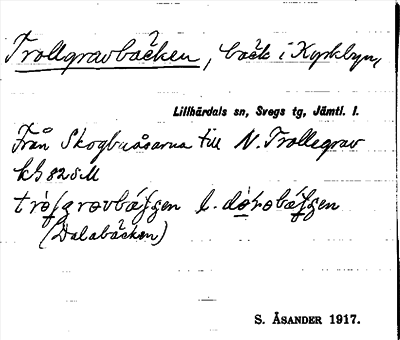 Trollgravbäcken, bäck i Kyrkbyn,
Lillhärdals sn, Svegs tg, Jämtl. l.
Från Skogbuåsarna till N. Trollegrav
kb 82 S.M
(Dalabäcken)
S. ÅSANDER 1917.